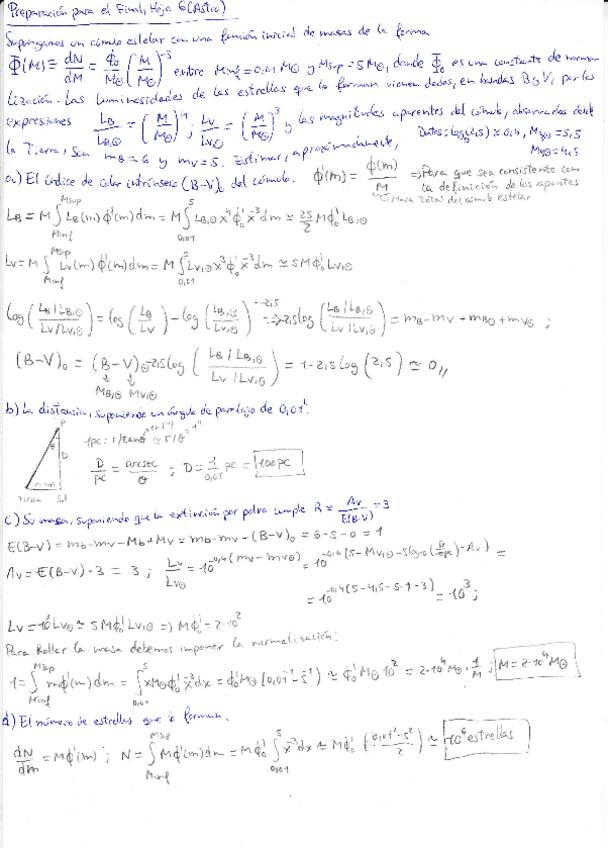 Preparación para el Final, Hoja 6 (Astro)
Supongamos un cúmulo estelar con una función inicial de masas de la forma
Φ(M) ≡ dN/dM = Φ₀/M⊙ (M/M⊙)^-3 entre Minf = 0,01 M⊙ y Msup = 5 M⊙, donde Φ₀ es una constante de norma
lización. Las luminosidades de las estrellas que lo forman vienen dadas, en bandas B y V, por las
expresiones L_B/L_B,⊙ = (M/M⊙)^4; L_V/L_V,⊙ = (M/M⊙)^3 y las magnitudes aparentes del cúmulo, observadas desde
la Tierra, son m_B = 6 y m_V = 5. Estimar, aproximadamente, Datos: log(2,5) ≈ 0,4, M_B⊙ = 5,5
M_V⊙ = 4,5
a) El índice de color intrínseco (B-V)₀ del cúmulo. φ'(m) = φ(m)/M ⇒ Para que sea consistente con
la definición de los apuntes
Masa total del cúmulo estelar
L_B = M ∫_Minf^Msup L_B(m) φ'(m) dm = M ∫_0,01^5 L_B,⊙ x^4 φ'₀ x^-3 dm ≈ 25/2 M φ'₀ L_B,⊙
L_V = M ∫_Minf^Msup L_V(m) φ'(m) dm = M ∫_0,01^5 L_V,⊙ x^3 φ'₀ x^-3 dm ≈ 5 M φ'₀ L_V,⊙
log((L_B/L_B,⊙)/(L_V/L_V,⊙)) = log(L_B/L_V) - log(L_B,⊙/L_V,⊙) ·-2,5 → -2,5 log((L_B/L_B,⊙)/(L_V/L_V,⊙)) = m_B - m_V - m_B⊙ + m_V⊙ ;
(B-V)₀ = (B-V)⊙ - 2,5 log((L_B/L_B,⊙)/(L_V/L_V,⊙)) = 1 - 2,5 log(2,5) ≈ 0 //
M_B,⊙ M_V,⊙
b) La distancia, suponiendo un ángulo de paralaje de 0,01".
D/pc = arcsec/θ ; D = 1/0,01 pc = 100 pc
Tierra Sol
c) Su masa, suponiendo que la extinción por polvo cumple R = A_V/E(B-V) = 3
E(B-V) = m_b - m_V - M_b + M_V = m_b - m_V - (B-V)₀ = 6 - 5 - 0 = 1
A_V = E(B-V) · 3 = 3 ; L_V/L_V⊙ = 10^-0,4(m_V - m_V⊙) = 10^-0,4(5 - M_V,⊙ - 5 log(D/10pc) - A_V) =
= 10^-0,4(5 - 4,5 - 5·1 - 3) = 10^3 ;
L_V = 10^3 L_V⊙ ≈ 5 M φ'₀ L_V,⊙ ⇒ M φ'₀ = 2·10^2
Para hallar la masa debemos imponer la normalización:
1 = ∫_Minf^Msup m φ'(m) dm = ∫_0,01^5 x M⊙ φ'₀ x^-3 dx = φ'₀ M⊙ (0,01^-1 - 5^-1) ≈ φ'₀ M⊙ 10^2 = 2·10^4 M⊙ · 1/M ; M = 2·10^4 M⊙
d) El número de estrellas que lo forman.
dN/dm = M φ'(m) ; N = ∫_Minf^Msup M φ'(m) dm = M φ'₀ ∫_0,01^5 x^-3 dx ≈ M φ'₀ ((0,01^-2 - 5^-2)/2) ≈ 10^6 estrellas